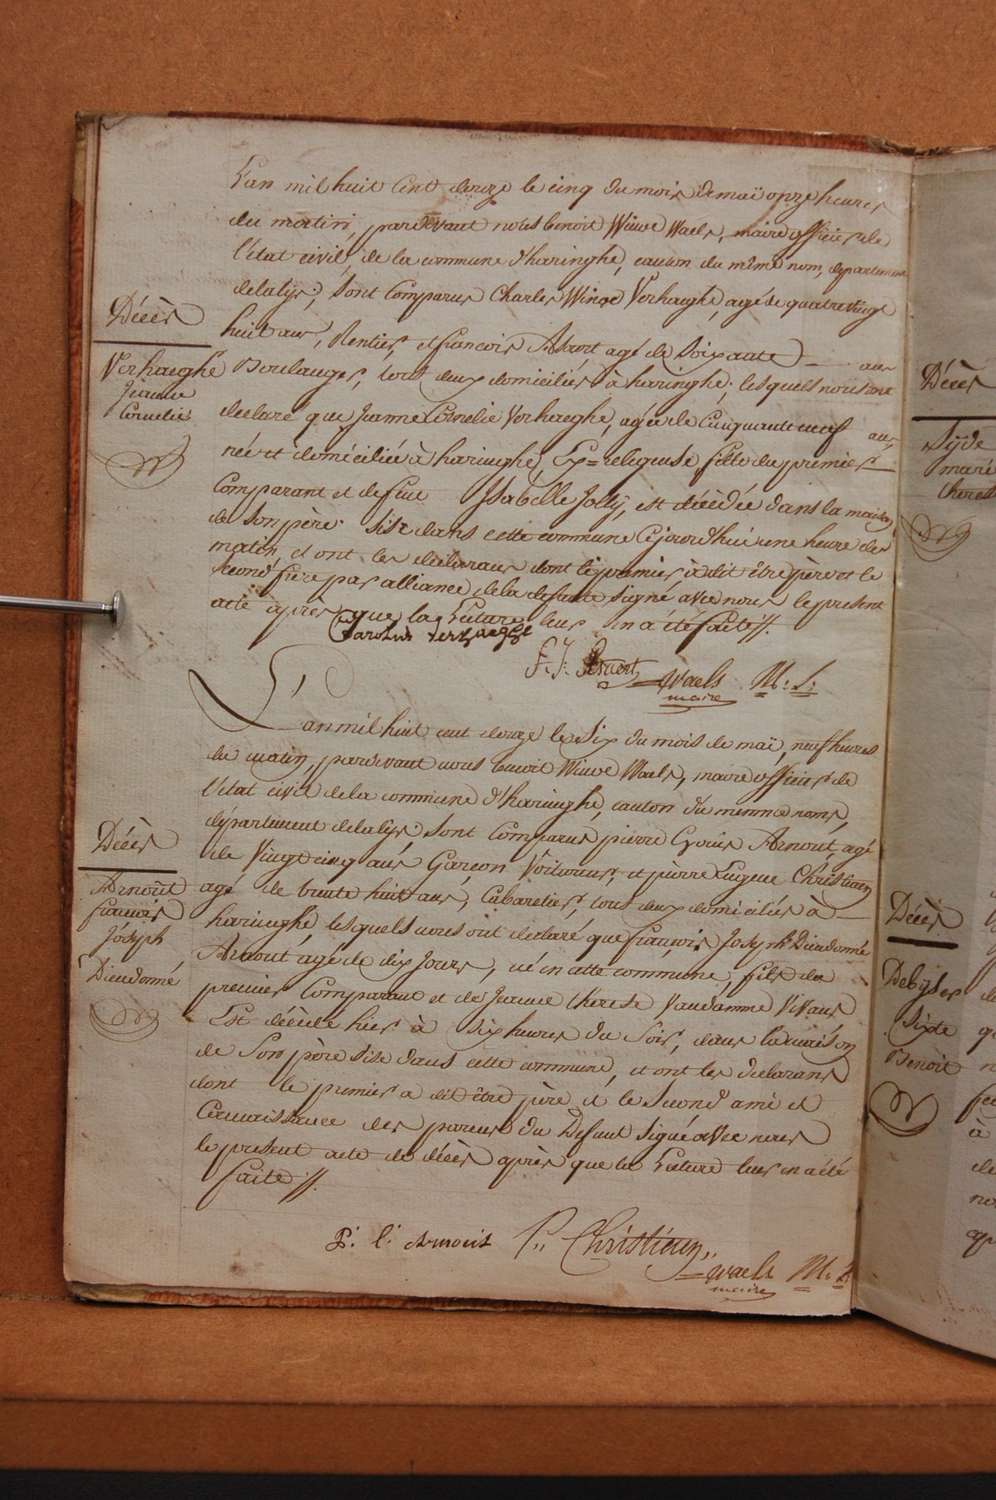 L'an mil huit Cent douze le cinq du mois de maï onze heures
du matin, pardevant nous benoit Winoc Waels, maire officier de
l'état civil de la commune d'haringhe, canton du même nom, département
de la lys, sont Comparus Charles Winoc Verhaeghe, agé de quatre vingt
Décès
huit ans, Rentier, et francois Assaert agé de Soixante ans
Verhaeghe
Jeanne
Cornelie
Boulanger, tous deux domiciliés à haringhe, lesquels nous ont
declaré que Jeanne Cornelie Verhaeghe, agée de Cinquante neuf ans
née et domiciliée à haringhe, Ex=religeuse fille du premier
Comparant et de feue Isabelle Jolly, est décédée dans la maison
de Son père Sise dans cette commune Cejourd'hui une heure du
matin, et ont les déclarans dont le premier à dit être père et le
second frère par alliance, de la defunte signé avec nous le present
acte après que la Lecture leur en à été faite //.
Carolus Verhaeghe
F. J.
Waels M: L:
maire
L'an mil huit cent douze le Six du mois de maï, neuf heures
du matin, pardevant nous benoit Winoc Waels, maire officier de
l'état civil de la commune d'haringhe, canton du même nom,
département de la lys, sont Comparus pierre Arnout, agé
Décès
de Vingt cinq ans Garçon Voiturier, et pierre Eugene Christiaen
Arnout
francois
Joseph
Dieudonné
agé de trente huit ans, Cabaretier, tous deux domiciliés à
haringhe lesquels nous ont declaré que francois Joseph Dieudonné
Arnout agé de dix Jours, né en cette commune, fils du
premier Comparant et de Jeanne therese Vandamme Vivans
Est décédé hier à Six heures du Soir, dans la maison
de Son père Sise dans cette commune, et ont les declarans
dont le premier a dit être père et le Second ami et
Connaissance des parens du Defunt Signé avec nous
le present acte de décès après que la Lecture leur en à été
faite //.
P. l. Arnout P,, Christiaen,,
Waels M: L:
maire
Décès
maré
theres
Décès
Debyser
Sixte
Benoit